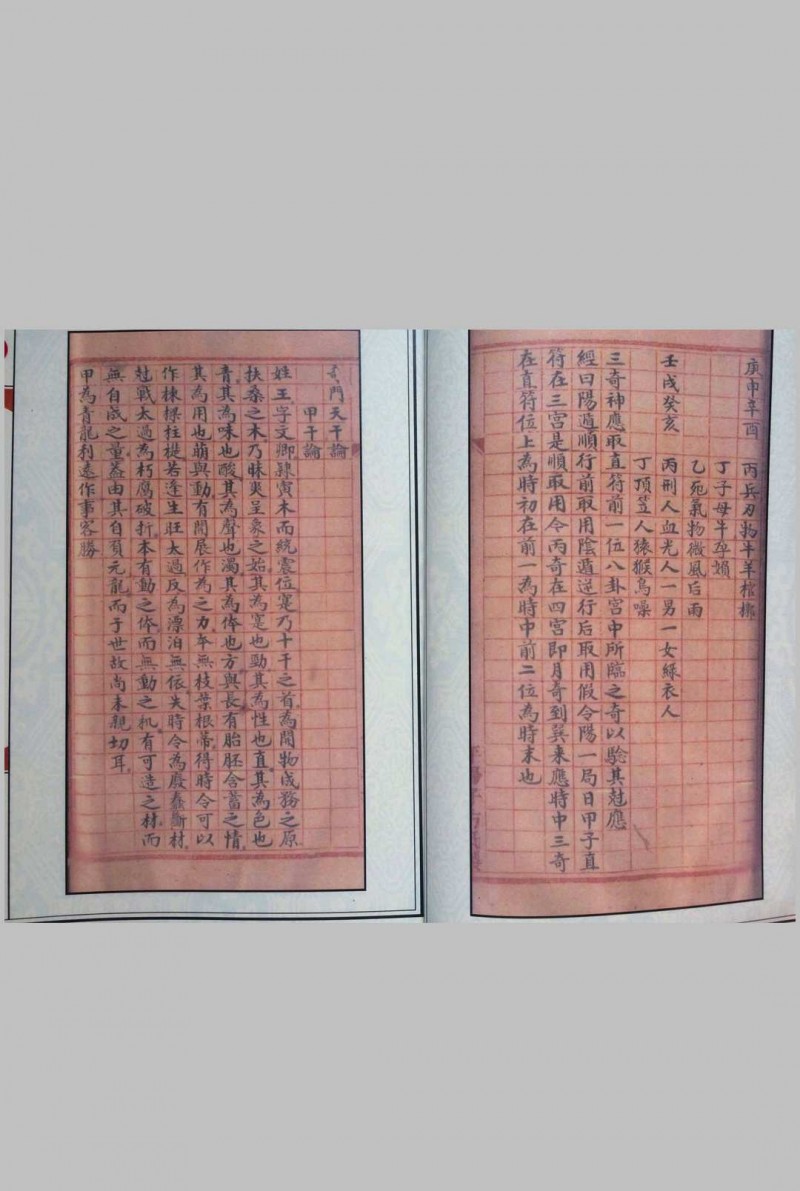 庚申辛酉　丙兵刃物牛羊棺槨
丁子母牛孕婦
乙死氣物微風后雨
壬戌癸亥　丙刑人血光人一男一女綠衣人
丁頂笠人猿猴鳥噪
三奇神應取直符前一位八卦宮中所臨之奇以驗其尅應
經曰陽遁順行前取用陰遁逆行后取用假令陽一局日甲子直
符在三宮是順取用令丙奇在四宮即月奇到巽来應時中三奇
在直符位上為時初在前一為時中前二位為時末也
門天干論
甲干論
姓王字文卿隸寅木而統震位寔乃十干之首為開物成務之原
扶桑之木乃昧爽呈象之始其為寔也勁其為性也直其為色也
青其為味也酸其為聲也濁其為体也方與長有胎胚含蓄之情
其為用也崩與動有開展作為之力卒無枝葉根蒂得時令可以
作棟樑柱提若逢生旺太過反為漂泊無依失時令為廢蠢斷材
尅戰太過為朽鷹破折本有動之体而無動之机有可造之材而
無自成之量蓋由其自負元龍而于世故尚未親切耳
甲為青龍利遠作事客勝